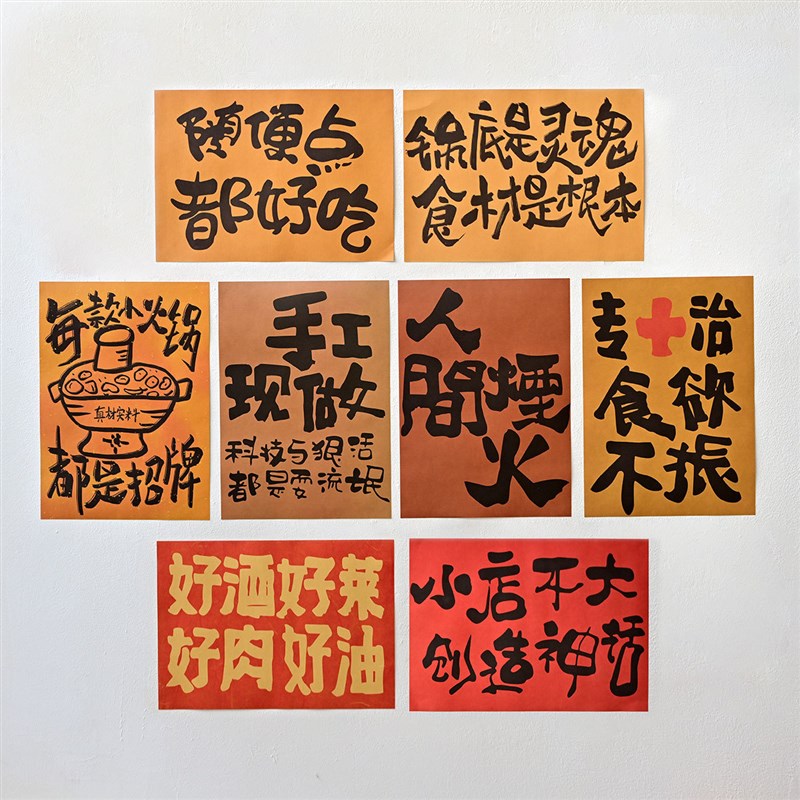 随便点
都好吃
锅底是灵魂
食材是根本
每款小火锅
真材实料
都是招牌
手工
现做
科技与狠活
都是耍流氓
人
間煙
火
专治
食欲
不振
好酒好菜
好肉好油
小店不大
创造神话